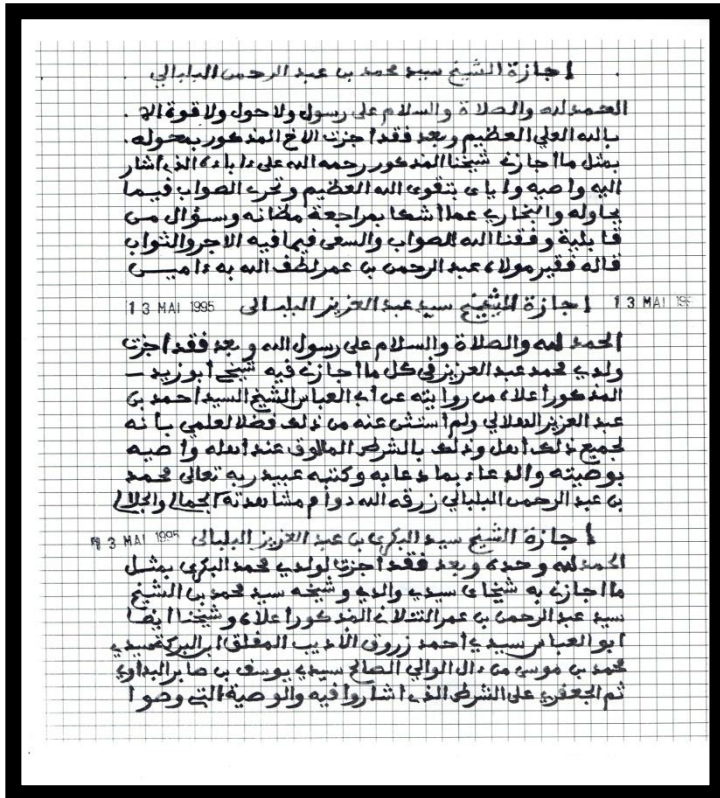 اجازة الشيخ سيد محمد بن عبد الرحمن البلبالي
الحمد لله والصلاة والسلام على رسول ولا حول ولا قوة الا
بالله العلي العظيم وبعد فقد اجزت الاخ المذكور بمحوله
بمثل ما اجازني شيخنا المذكور رحمه الله على الذي اشار
اليه واصيه واياي بتقوى الله العظيم وتحري الصواب فيما
يحاوله والتحاري عما اشكل بمراجعة مظانه وسؤال من
وفقنا الله للصواب والسعي فيما فيه الاجر والثواب
قاله فقير مولاه عبد الرحمن بن عمر لطف الله به ءاميـن
13 MAI 1995 اجازة الشيخ سيد عبد العزيز البلبالي 13 MAI 199
الحمد لله والصلاة والسلام على رسول الله وبعد فقد اجزت
ولدي محمد عبد العزيز في كل ما اجازني فيه شيخي ابو زيد
المذكور اعلاه من روايته عن ابي العباس الشيخ السيد احمد بن
عبد العزيز الهلالي ولم استثن عنه من ذلك فضلا لعلمي بأنه
لجميع ذلك اهل وذلك بالشرط المالوف عند اهله واصيه
بوصيته والدعاء بما دعا به وكتبه عبيد ربه تعالى محمد
بن عبد الرحمن البلبالي رزقه الله دوام مشاهدته الجمال والجلال
13 MAI 1995 اجازة الشيخ سيد البكري بن عبد العزيز البلبالي
الحمد لله وحده وبعد فقد اجزت لولدي محمد البكري بمثـل
ما اجازني به شيخاي سيدي والدي وشيخه سيد محمد بن الشيخ
سيد عبد الرحمن بن عمر التنلاني المذكور اعلاه وشيخنا ايضا
ابو العباس سيدي احمد زروق الاديب المفلق ابو البركة سيدي
محمد بن موسى من ءال الوالي الصالح سيدي يوسف بن صابر البداوي
ثم الجعفري على الشرط الذي اشاروا فيه والوصية التي وصوا